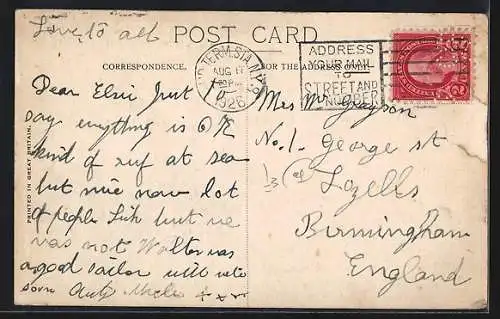 Love to all
POST CARD
CORRESPONDENCE.
FOR THE ADDRESS ONLY.
HUD. TERM. STA. N.Y.
AUG
1926
ADDRESS
YOUR MAIL
TO
STREET AND
NUMBER
PRINTED IN GREAT BRITAIN.
Dear Elsie Just
say everything is OK
kind of ruf at sea
but nice now lot
of people Sick but we
was not Walter was
a good sailor will write
soon Aunty x x x
Mrs Mr Grayson
No. 1. George St
Lozells
Birmingham
England